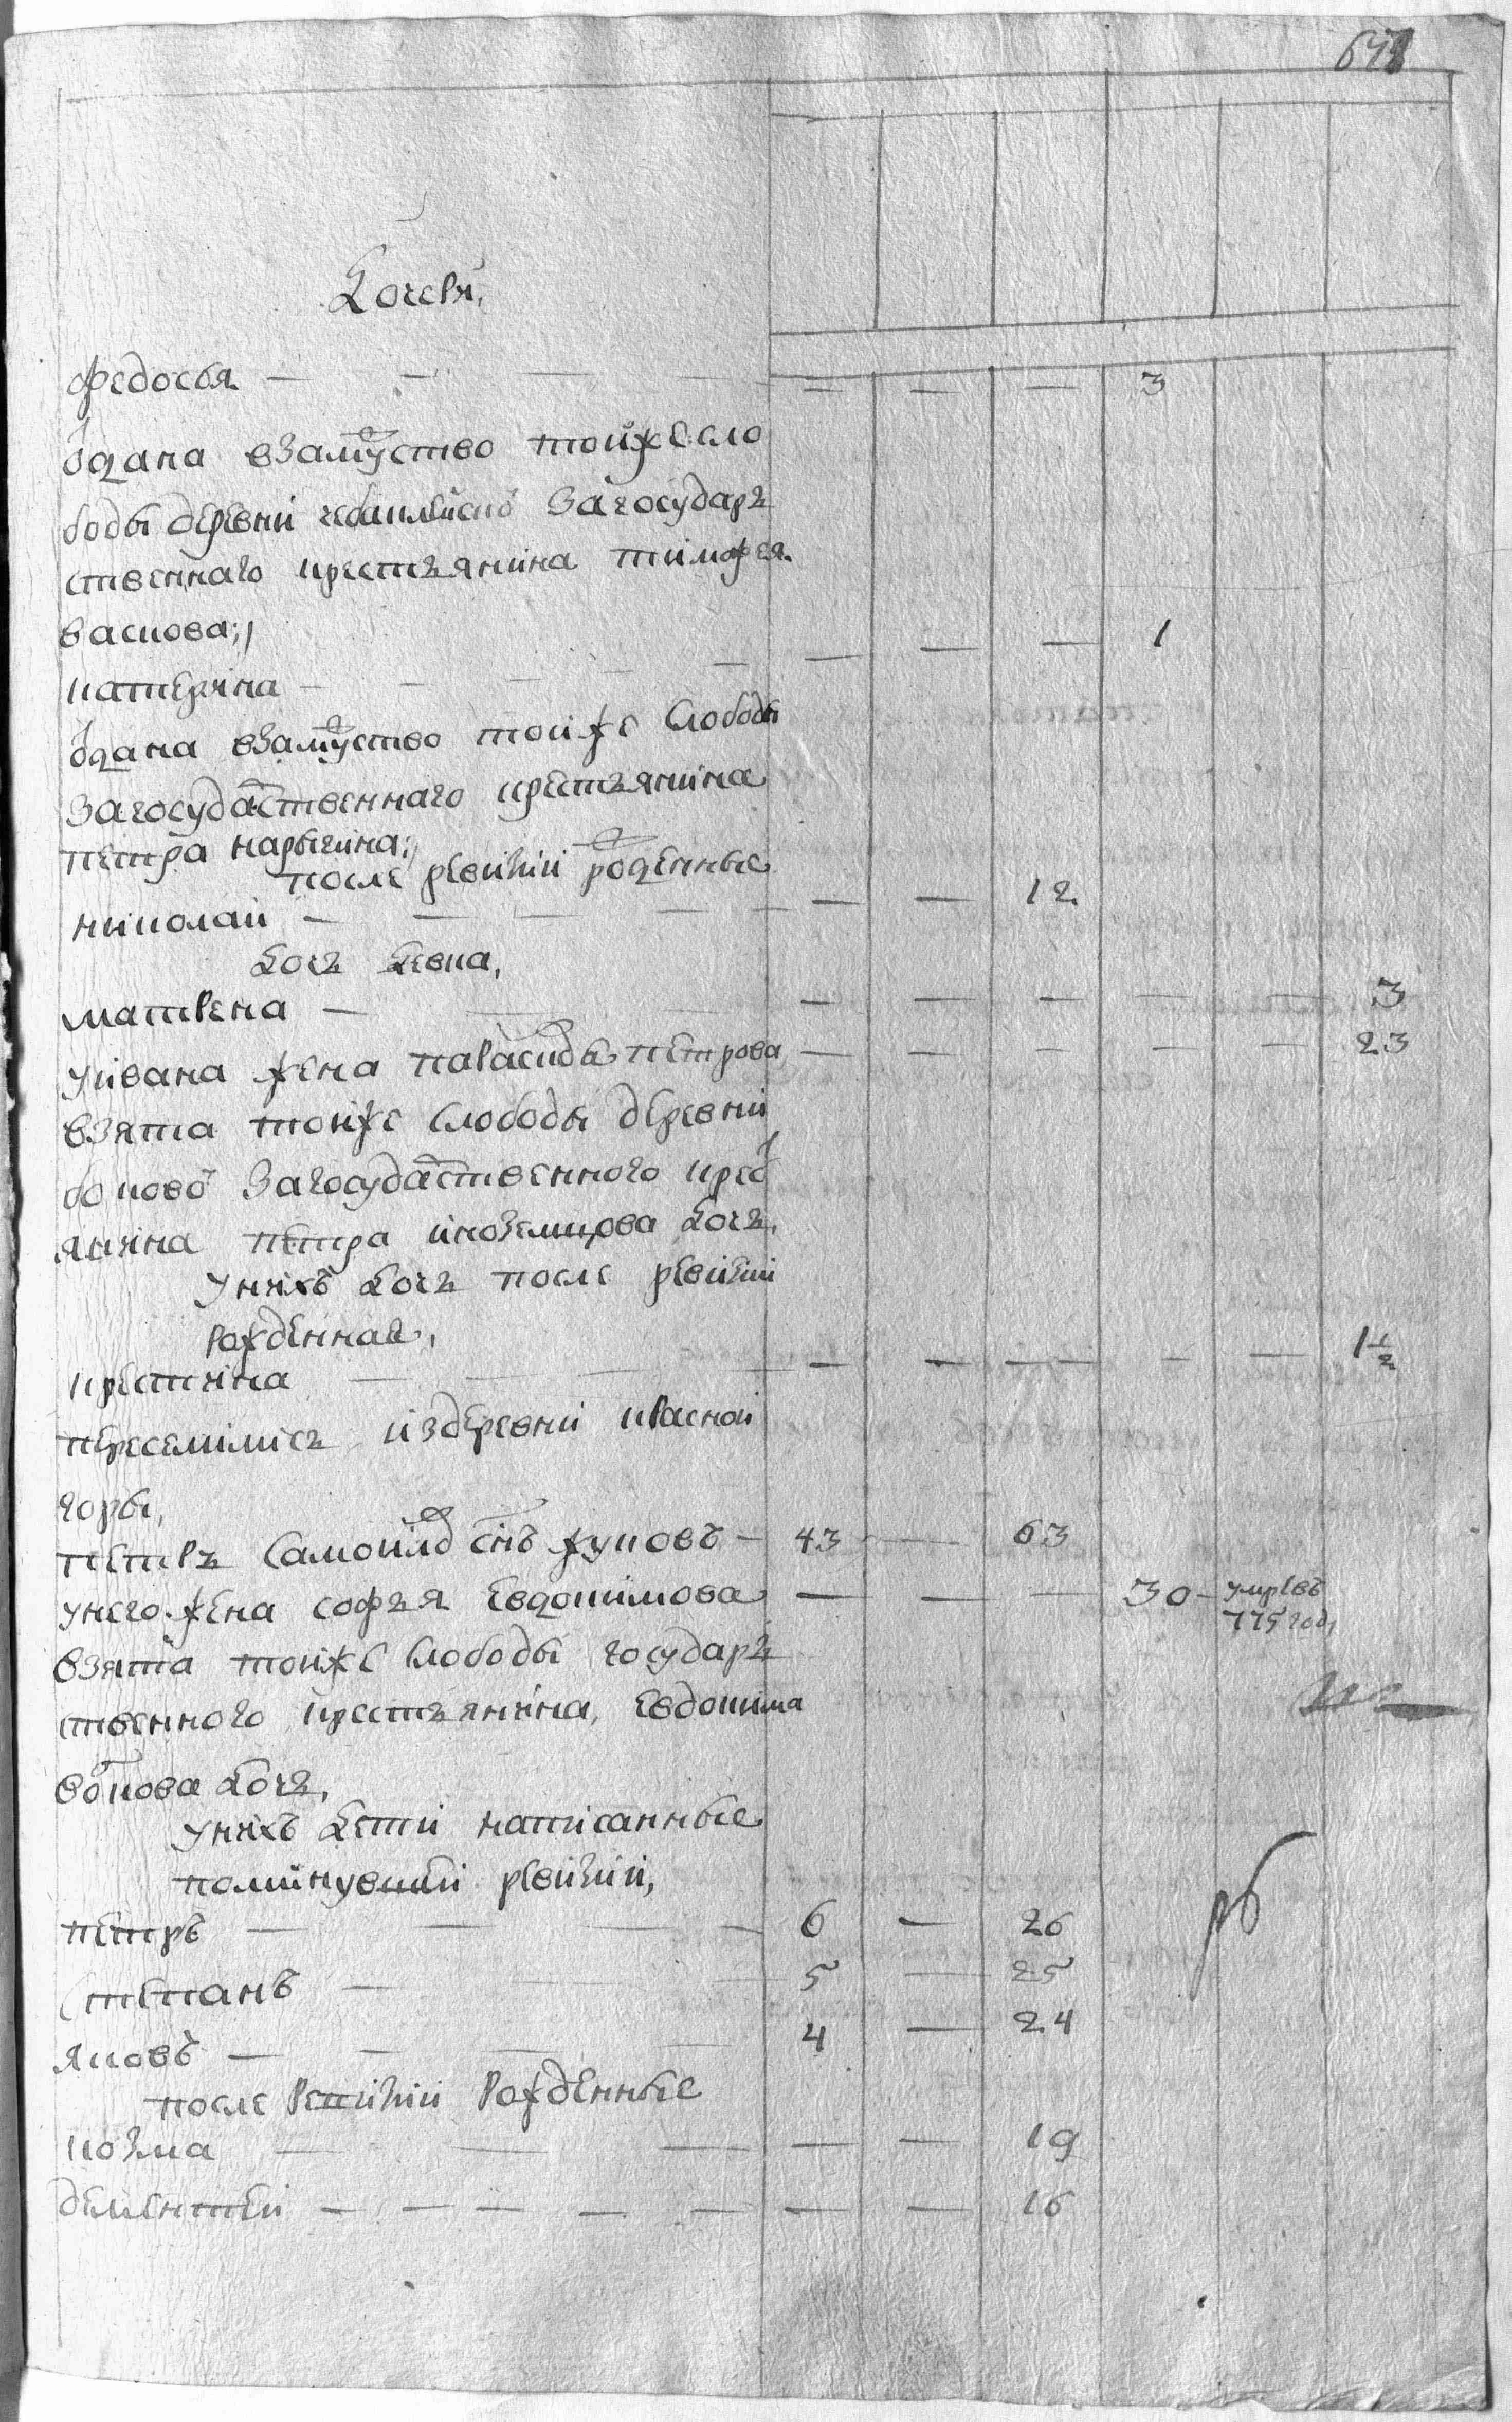 648
дочери,
федосья — — — — — — — 3
отдана взамужство тойже сло
боды деревни заГосудар
ственнаго крестьянина тимофея
васкова;
катерина — — — — — — — 1
отдана взамужство тойже слободы
загосударственнаго крестьянина
петра нарыгина;
после ревизии рожденные
николай — — — — — — 12
дочь девка,
матрена — — — — — — 3
уивана жена парасковья петрова — — — — — 23
взята тойже слободы деревни
боковой загосударственного крест
янина петра иноземцова дочь,
унихъ дочь после ревизии
рожденная,
кристина — — — — — — — 1 1/2
переселились издеревни красной
горы,
петръ самойловъ сынъ жуковъ — 43 — 63
унего жена софья евдокимова — — — 30 — умре въ
775 году
взята тойже слободы государь
ственного крестьянина, евдокима
волкова дочь,
унихъ дети написанные
поминувшей ревизии,
петръ — — — 6 — 26
степанъ — — 5 — 25
яковъ — — — 4 — 24
после ревизии рожденные
козма — — — — — 19
дементей — — — — — — — 16